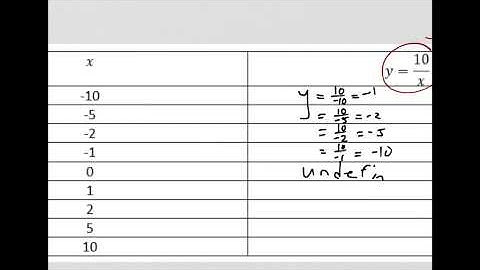 x y = 10/x
-10 y = 10/-10 = -1
-5 = 10/-5 = -2
-2 = 10/-2 = -5
-1 = 10/-1 = -10
0 undefin
1
2
5
10